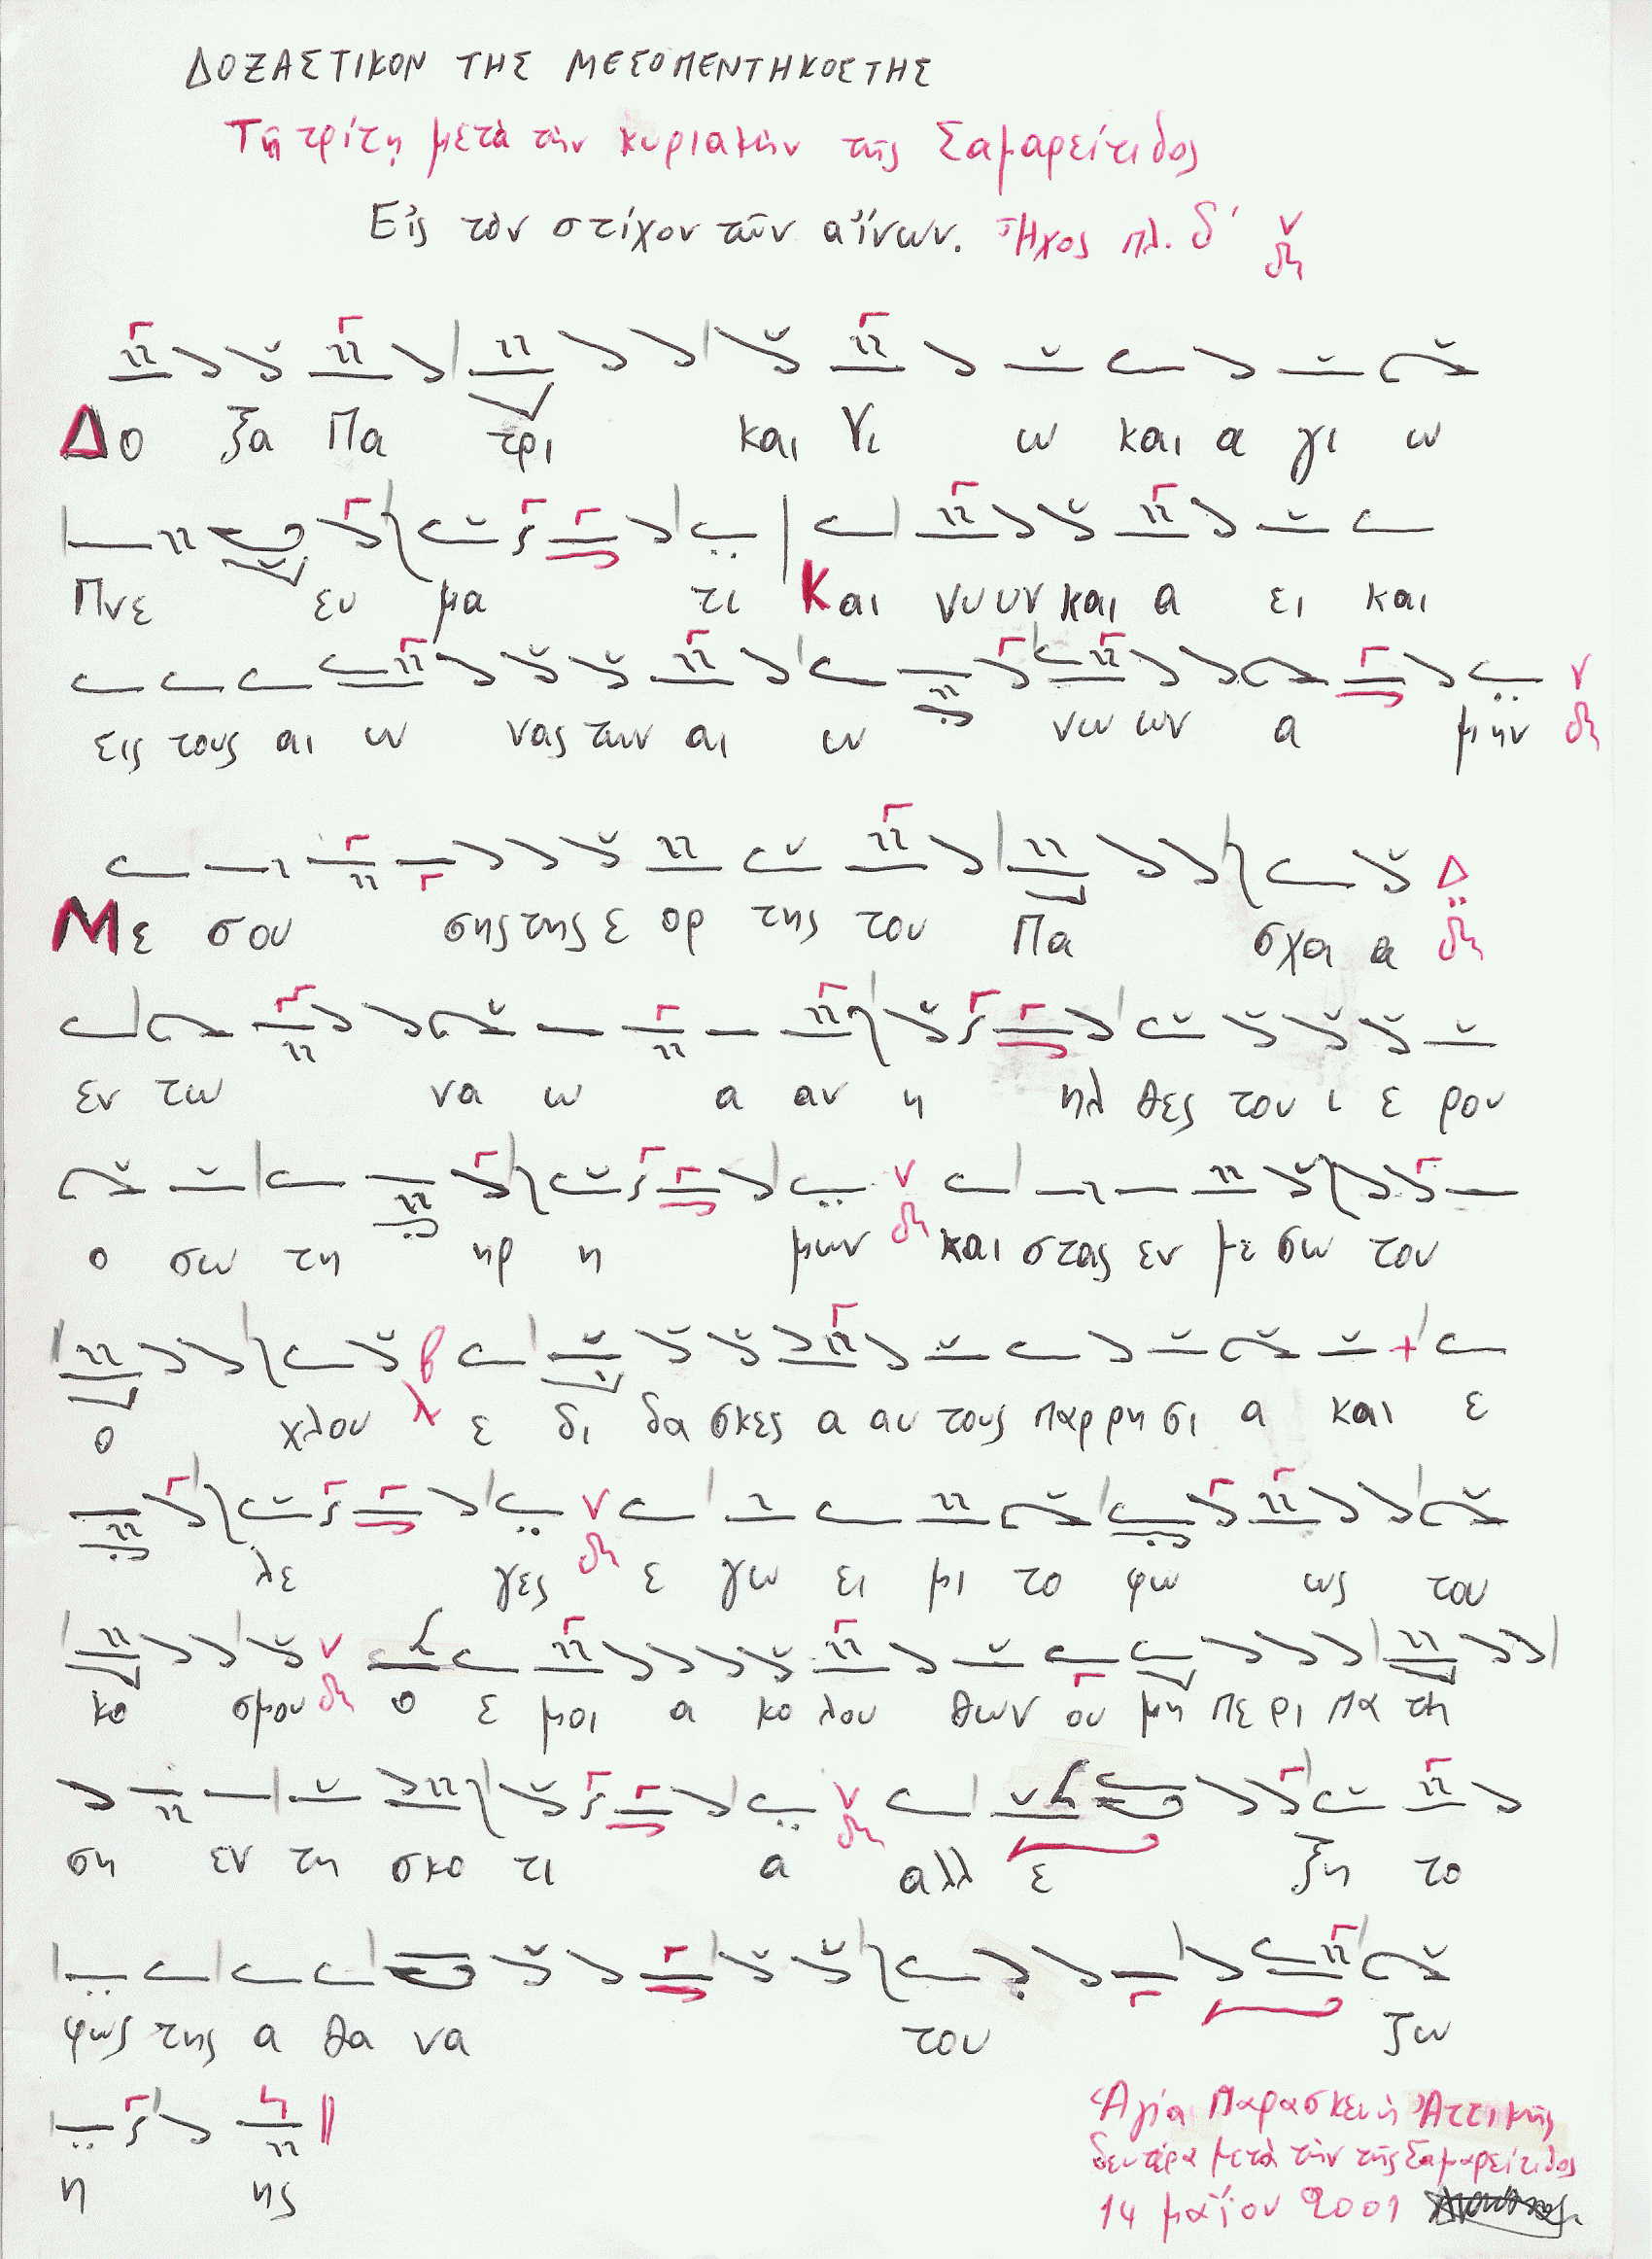 ΔΟΞΑΣΤΙΚΟΝ ΤΗΣ ΜΕΣΟΠΕΝΤΗΚΟΣΤΗΣ
Τῇ τρίτῃ μετὰ τὴν κυριακὴν τῆς Σαμαρείτιδος
Εἰς τὸν στίχον τῶν αἴνων. Ἦχος πλ. δ΄ ν δι
Δο ξα Πα τρι και Υι ω και α γι ω
Πνε ευ μα τι Και νυ υν και α ει και
εις τους αι ω νας των αι ω νω ων α μην
Με σου σης της ε ορ της του Πα σχα α
εν τω να ω α αν η ηλ θες του ι ε ρου
ο σω τη ηρ η μων και στας εν με σω του
ο χλου ε δι δα σκες α αυ τους παρ ρη σι α και ε
λε γες ε γω ει μι το φω ως του
κο σμου ο ε μοι α κο λου θων ου μη πε ρι πα τη
ση εν τη σκο τι α αλλ ε ξη το
φως της α θα να του ζω
η ης
Ἁγία Παρασκευὴ Ἀττικῆς
δευτέρα μετὰ τὴν τῆς Σαμαρείτιδος
14 μαΐου 2001